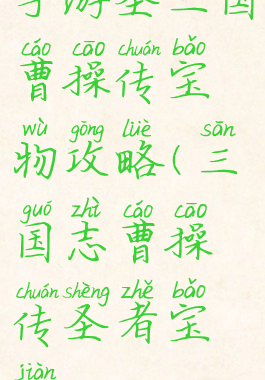 手游圣三国
cáo cāo chuán bǎo
曹操传宝
wù gōng lüè sān
物攻略(三
guó zhì cáo cāo
国志曹操
chuán shèng zhě bǎo
传圣者宝
jiàn